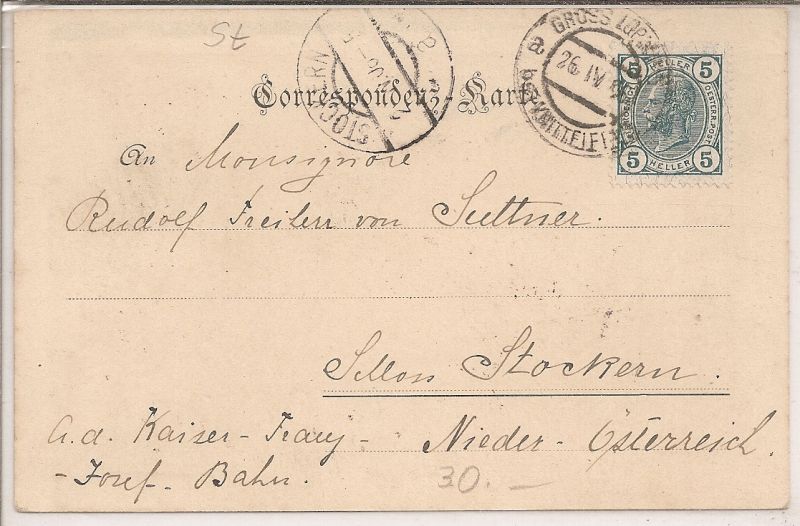 St
Correspondenz-Karte
STOCKERN
a
GROSS
a
26. IV
5 HELLER 5
5 HELLER 5
An Monsignore
Rudolf Freiherr von Suttner.
Schloss Stockern.
a. d. Kaiser-Franz- Nieder-Österreich.
-Josef-Bahn.
30.—